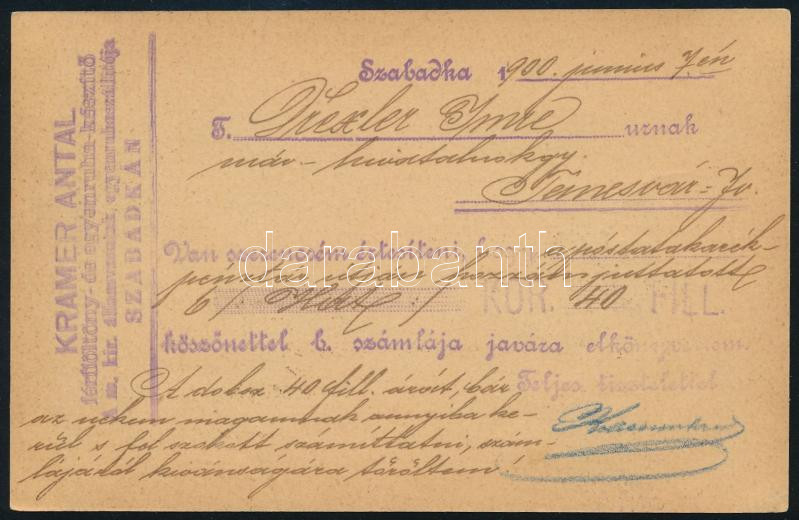 KRAMER ANTAL
férfiöltöny- és egyénruha-készítő
a m. kir. államvasutak egyenruhaszállítója
SZABADKÁN
Szabadka 1900. junius 7én
T. Drexler Imre urnak
máv-hivatalnok
Temesvár-Jv.
Van szerencsém értesiteni, hogy a póstatakarék-
pénztár utján hozzám juttatott
6 / Hat / KOR. 40 FILL.
köszönettel b. számlája javára elkönyveltem.
Teljes tisztelettel
A doboz 40 fill. árát, bár
az nekem magamnak annyiba ke-
rül s fel szokott számíttatni, szám-
lájáról kivánságára töröltem!
darabanth